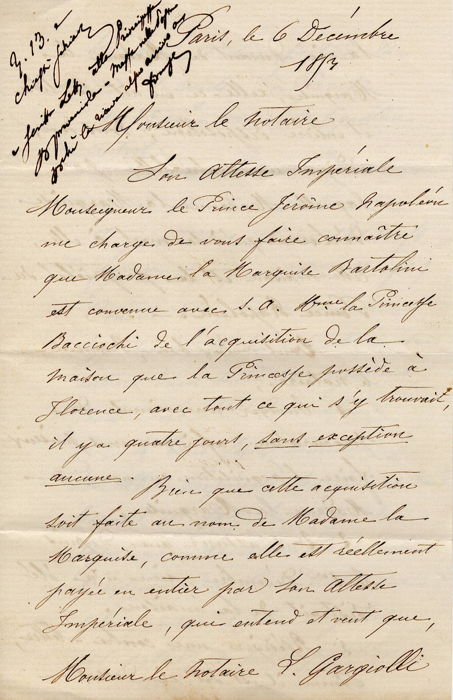 Paris, le 6 Décembre
1853
Monsieur le notaire
Son Altesse Impériale
Monseigneur le Prince Jérôme Napoléon
me charge de vous faire connaître
que Madame la Marquise Bartolini
est convenue avec S. A. Mme la Princesse
Bacciochi de l'acquisition de la
maison que la Princesse possède à
Florence, avec tout ce qui s'y trouvait,
il y a quatre jours, sans exception
aucune. Bien que cette acquisition
soit faite au nom de Madame la
Marquise, comme elle est réellement
payée en entier par Son Altesse
Impériale, qui entend et veut que,
Monsieur le notaire S. Gargiolli